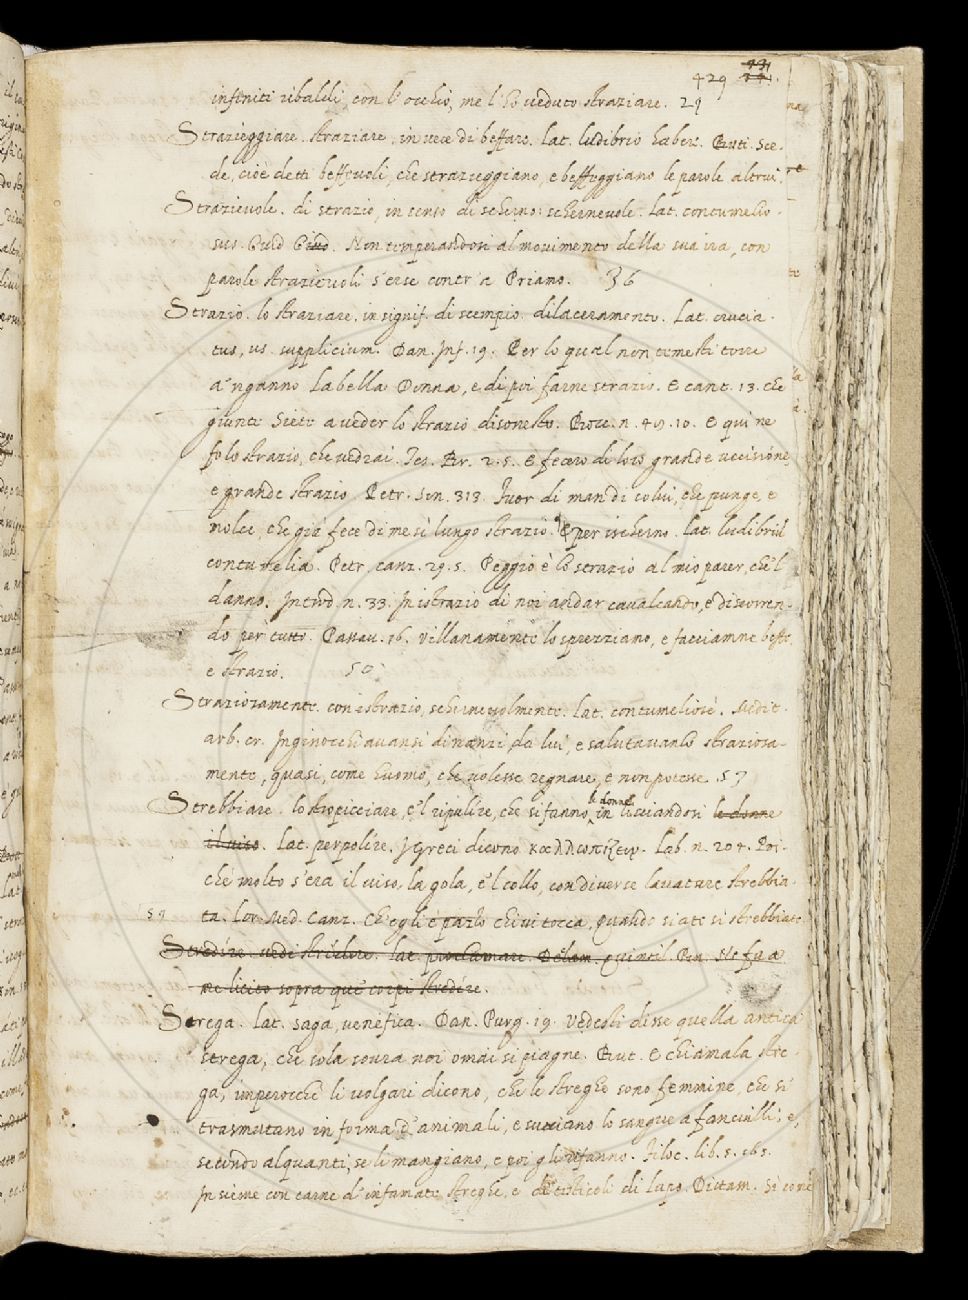 429
infiniti ribaldi, con l'occhio, me l'ho veduto straziare. 29
Strazieggiare. straziare, in vece di beffare. Lat. ludibrio habere. But. Sce-
de, cioè detti beffevoli, che strazieggiano, e beffeggiano le parole altrui.
Strazievole. di strazio, in senso di scherno: schernevole. Lat. contumelio-
sus. Ovid. Non temperandosi al movimento della sua ira, con
parole strazievoli s'erse contr'a Priamo. 36
Strazio. lo straziare, in signif. di scempio. dilaceramento. Lat. crucia-
tus, us. supplicium. Dan. Inf. 19. Per lo qual non temesti torre
a 'nganno La bella Donna, e di poi farne strazio. E cant. 13. che
giunti Siete a veder lo strazio disonesto. Bocc. n. 49. 10. E qui ne
fo lo strazio, che vedrai. Tes. Br. 2. 5. E fecero di loro grande uccisione,
e grande strazio. Petr. Son. 313. Fuor di man di colui, che punge, e
molce, che già fece di me sì lungo strazio. E per ischerno. Lat. ludibriū
contumelia. Petr. canz. 29. 5. Peggio è lo strazio al mio parer, che 'l
danno. Introd. n. 33. In istrazio di noi andar cavalcando, e discorren-
do per tutto. Passav. 16. Villanamente lo sprezziano, e facciamne beffe,
e strazio. 50
Straziosamente. con istrazio, schernevolmente. Lat. contumeliosè. Medit.
arb. cr. Inginocchiavansi dinanzi da lui, e salutavanlo straziosa-
mente, quasi, come huomo, che volesse regnare, e non potesse. 57
le donne
Strebbiare. lo stropicciare, e 'l ripulire, che si fanno, in lisciandosi le donne
il viso. Lat. perpolire. I Greci dicono καλλωπίζειν. Lab. n. 204. Poi-
chè molto s'era il viso, la gola, e 'l collo, con diverse lavature strebbia-
59 ta. Lor. Med. Canz. Ch'egli è pazzo chi vi tocca, Quando siate sì strebbiate
Stredire. vedi stridire. Lat. proclamare. Declam. Quintil.
ne licito sopra que' corpi stredire.
Strega. Lat. saga, venefica. Dan. Purg. 19. Vedesti disse quella antica
strega, che sola sovra noi omai si piagne. But. E chiamala stre-
ga, imperocchè li volgari dicono, che le streghe sono femmine, che si
trasmutano in forma d'animali, e succiano lo sangue a fanciulli; e,
secondo alquanti, se li mangiano, e poi gli rifanno. Filoc. lib. 5. 165.
Insieme con carne d'infamate streghe, e de' testicoli di Lupo. Dittam. Sì come